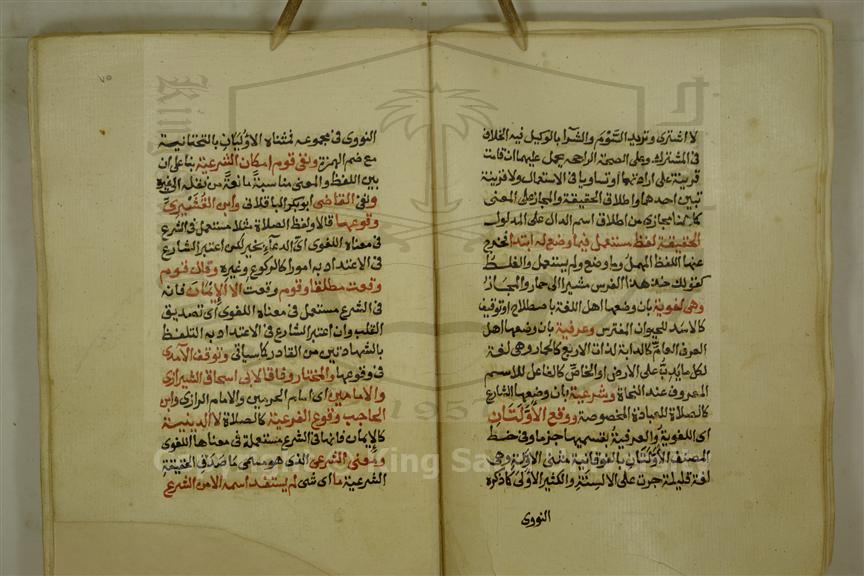 لا اشترى وتريد السوم والشرا بالوكيل فيه الخلاف
فى المشترك وعلى الصحة الراجحه يحمل عليهما ان قامت
قرينة على ارادتهما او تساويا فى الاستعمال ولا قرينة
تبين احدهما واطلاق الحقيقة والمجاز على المعنى
كما هنا مجازى من اطلاق اسم الدال على المدلول
الحقيقة لفظ مستعمل فيما وضع له ابتدا فخرج
عنها اللفظ المهمل وما وضع ولم يستعمل والغلط
كقولك خذ هذا الفرس مشيرا الى حمار والمجاز
وهى لغوية بان وضعها اهل اللغة باصطلاح او توقيف
كالاسد للحيوان المفترس وعرفية بان وضعها اهل
العرف العام كالدابة لذات الاربع كالحمار وهى لغة
لكل ما يدب على الارض او الخاص كالفاعل للاسم
المعروف عند النحاة وشرعية بان وضعها الشارع
كالصلاة للعبادة المخصوصة ووقع الأولتان
اى اللغوية والعرفية بقسميها جزما وفى خط
المصنف الأولتان بالفوقانية مثنى الاولة وهى
لغة قليلة جرت على الالسنة والكثير الاولى كما ذكره
النووى
النووى فى مجموعه فمثناه الاوليان بالتحتانية
مع ضم الهمزة ونفى قوم امكان الشرعية بنا على ان
بين اللفظ والمعنى مناسبة مانعة من نقله الى غيره
ونفى القاضى ابو بكر الباقلانى وابن القشيرى
وقوعها قالا ولفظ الصلاة مثلا مستعمل فى الشرع
فى معناه اللغوى اى الدعاء بخير لكن اعتبر الشارع
فى الاعتداد به امورا كالركوع وغيره وقال قوم
وقعت مطلقا وقوم وقعت الا الايمان فانه
فى الشرع مستعمل فى معناه اللغوى اى تصديق
القلب وان اعتبر الشارع فى الاعتداد به التلفظ
بالشهادتين من القادر كما سياتى وتوقف الآمدى
فى وقوعها والمختار وفاقا لابى اسحاق الشيرازى
والامامين اى امام الحرمين والامام الرازى وابن
الحاجب وقوع الفرعية كالصلاة لا الدينية
كالايمان فانها فى الشرع مستعملة فى معناها اللغوى
ومعنى الشرعى الذى هو مسمى ما صدق الحقيقة
الشرعية ما اى شى لم يستفد اسمه الا من الشرع